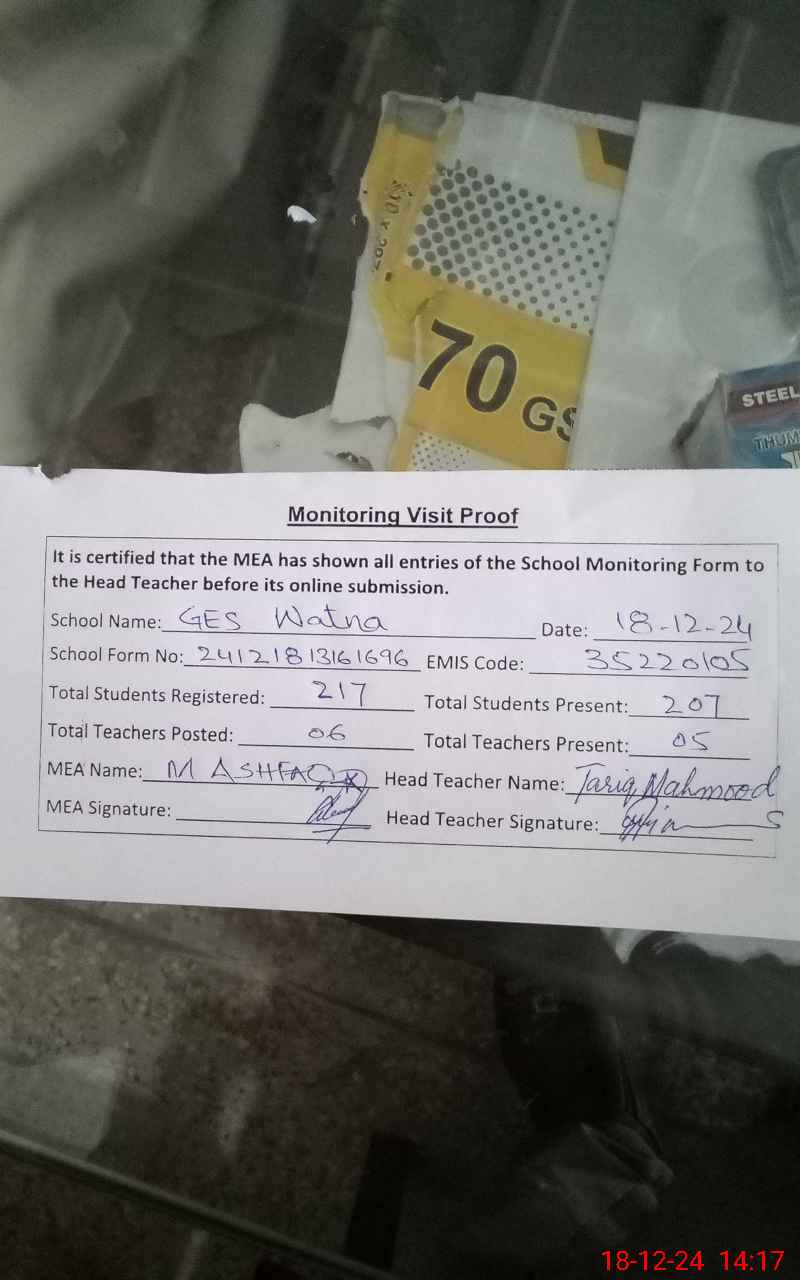 70 GS
STEEL
THUM
Monitoring Visit Proof
It is certified that the MEA has shown all entries of the School Monitoring Form to
the Head Teacher before its online submission.
School Name: GES Watna Date: 18-12-24
School Form No: 24121813161696 EMIS Code: 35220105
Total Students Registered: 217 Total Students Present: 207
Total Teachers Posted: 06 Total Teachers Present: 05
MEA Name: M ASHFAQ Head Teacher Name: Tariq Mahmood
MEA Signature: Head Teacher Signature:
18-12-24 14:17